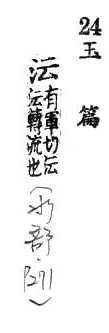 24
玉篇
沄
有軍切沄
沄轉流也
（水部·P271）